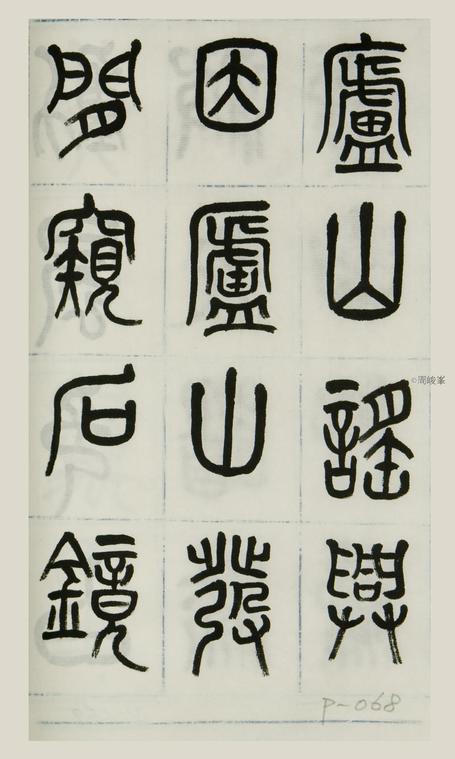 廬山謠興
因廬山發
閒窺石鏡
©周峻峯
P-068